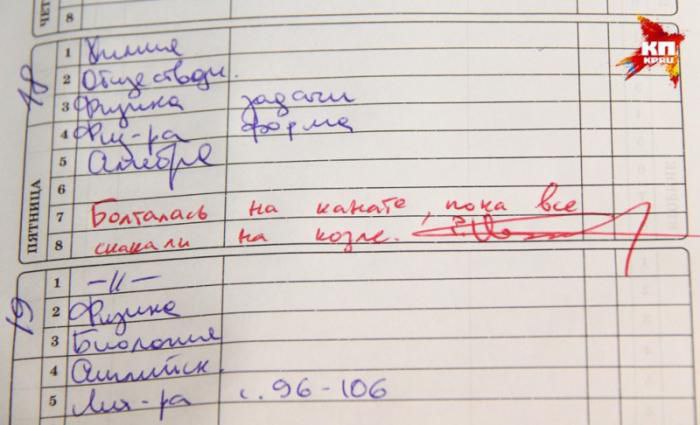 ЧЕТ
8
18
ПЯТНИЦА
1 Химия
2 Обществозн.
3 Физика задачи
4 Физ-ра форма
5 Алгебра
6
7 Болталась на канате, пока все
8 скакали на козле.
19
1 -//-
2 Физика
3 Биология
4 Английск.
5 Лит-ра с. 96-106
КП
КРЫМ